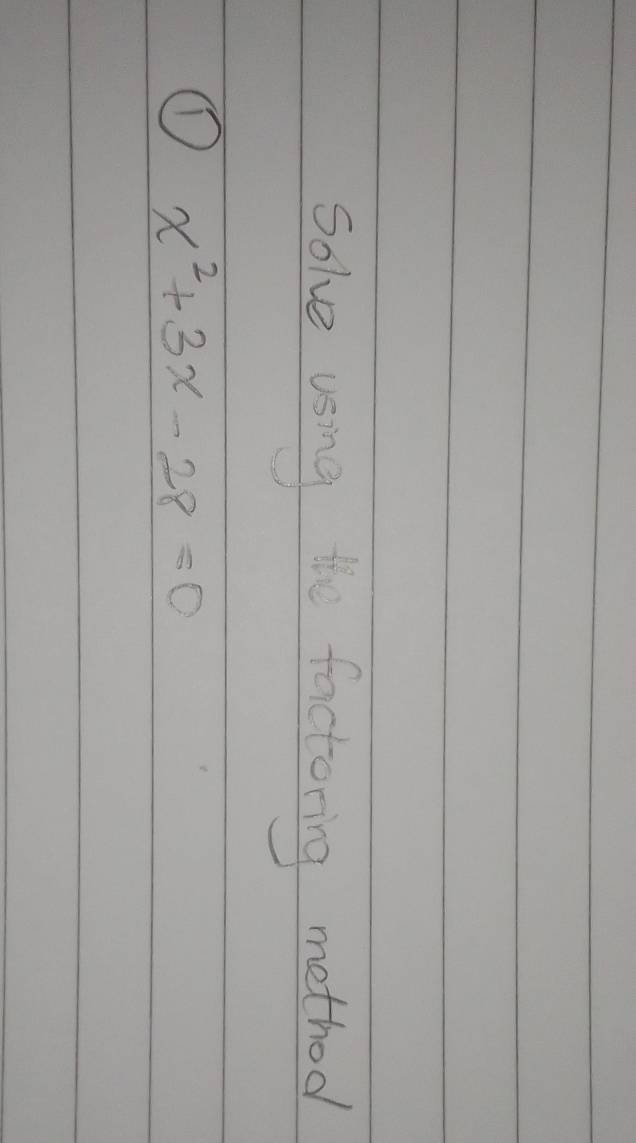 Solve using the factoring method
① x² + 3x - 28 = 0